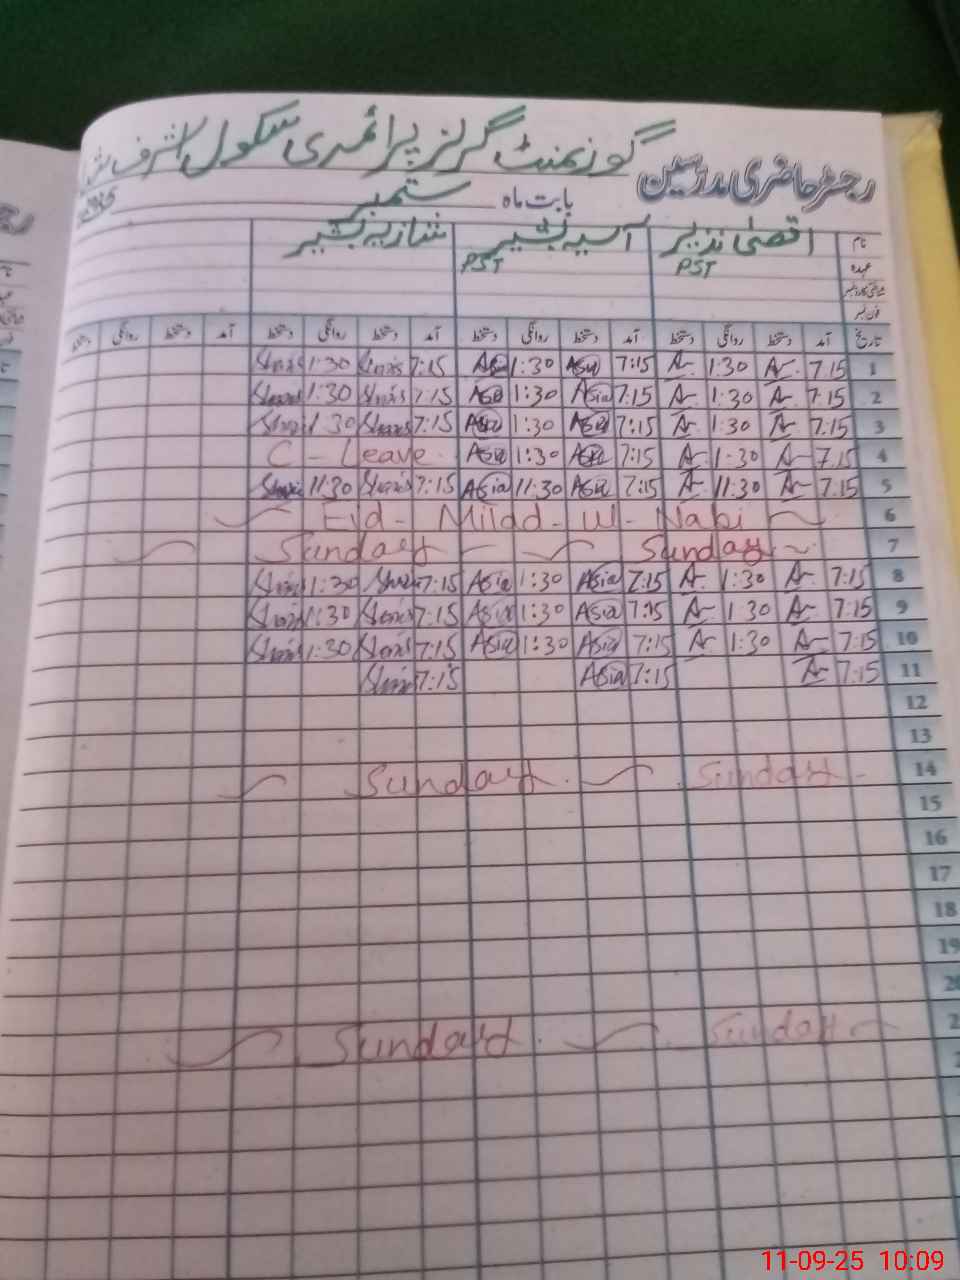 رجسٹر حاضری مدرسین گورنمنٹ گرلز پرائمری سکول اشرف
بابت ماہ ستمبر
نام اقصیٰ نذیر آسیہ بشیر شازیہ بشیر
عہدہ PST PST
شناختی کارڈ نمبر
فون نمبر
تاریخ آمد دستخط روانگی دستخط آمد دستخط روانگی دستخط آمد دستخط روانگی دستخط آمد دستخط روانگی دستخط
1 7:15 A 1:30 A 7:15 Asia 1:30 Asia 7:15 1:30
2 7:15 A 1:30 A 7:15 Asia 1:30 Asia 7:15 1:30
3 7:15 A 1:30 A 7:15 Asia 1:30 Asia 7:15 1:30
4 7:15 A 1:30 A 7:15 Asia 1:30 Asia C - Leave
5 7:15 A 11:30 A 7:15 Asia 11:30 Asia 7:15 11:30
6 Eid - Milad - ul - Nabi
7 Sunday Sunday
8 7:15 A 1:30 A 7:15 Asia 1:30 Asia 7:15 1:30
9 7:15 A 1:30 A 7:15 Asia 1:30 Asia 7:15 1:30
10 7:15 A 1:30 A 7:15 Asia 1:30 Asia 7:15 1:30
11 7:15 A 7:15 Asia 7:15
12
13
14 Sunday Sunday
15
16
17
18
19
20
2 Sunday Sunday
11-09-25 10:09